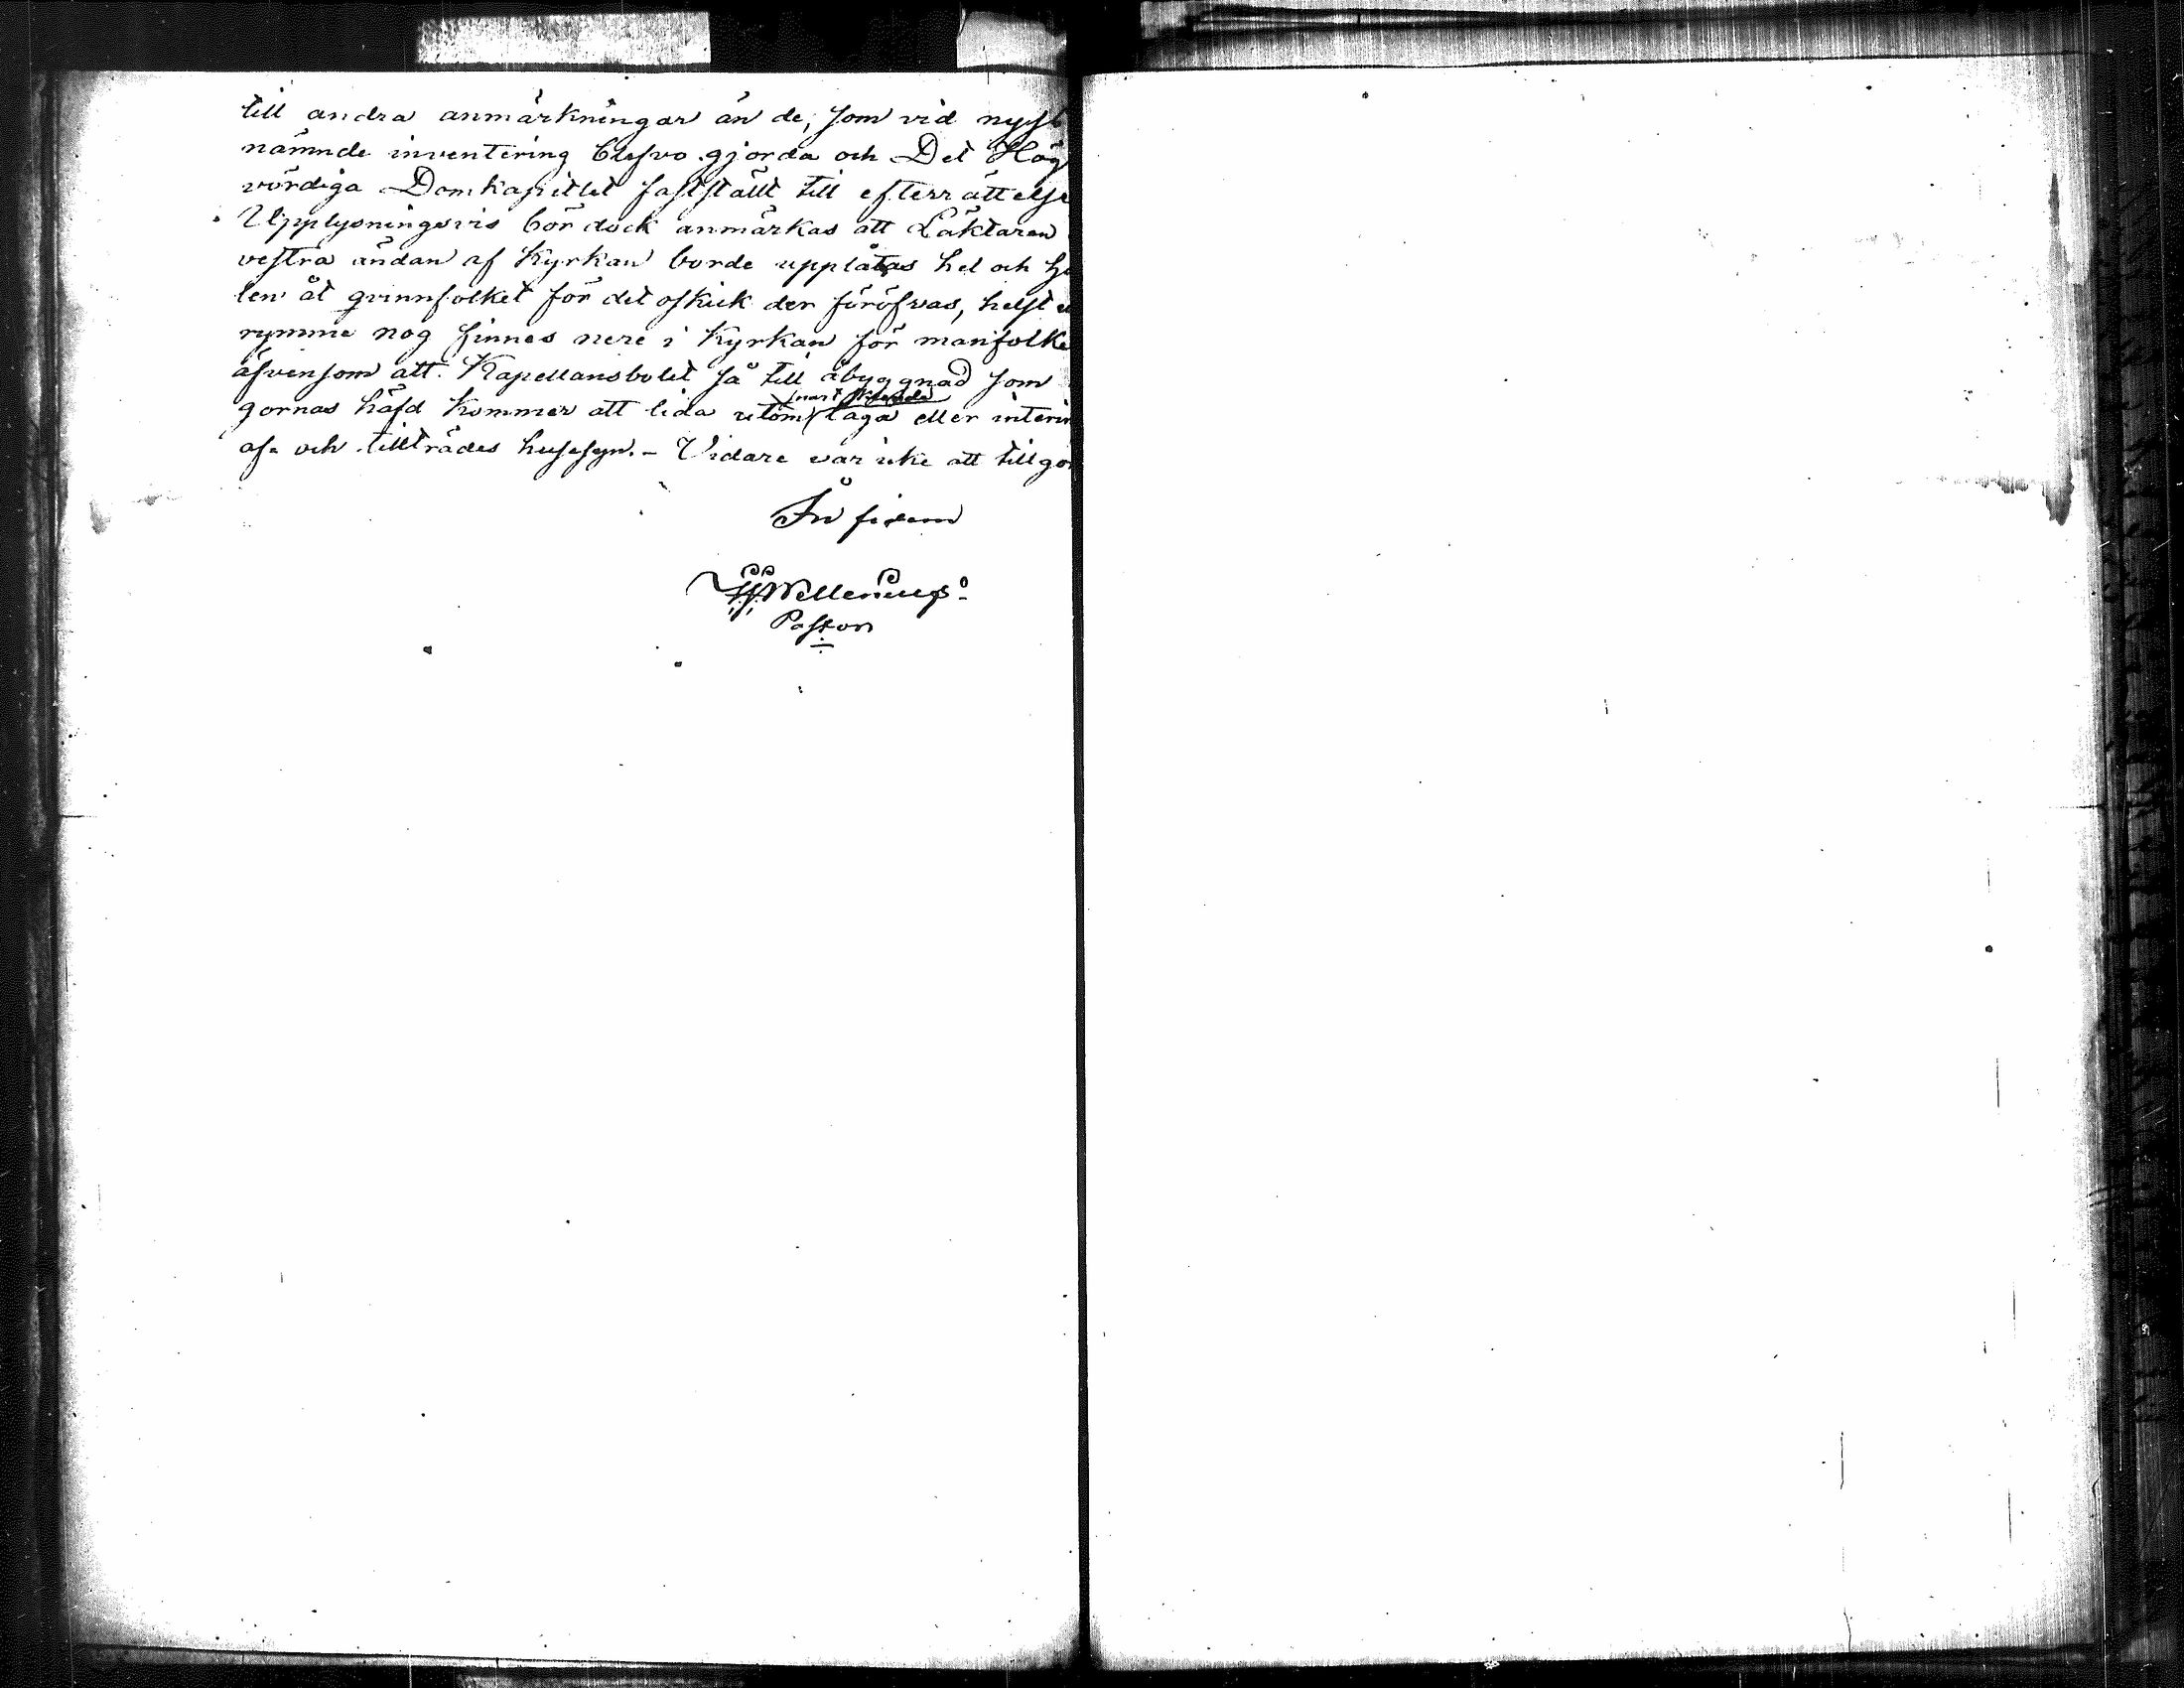 till andra anmärkningar än de, som vid nyss
nämnde inventering blefvo gjorda och Det Hög
vördiga Domkapitlet fastställt till efterrättelse
Upplysningsvis bör dock anmärkas att Läktaren
vestra ändan af Kyrkan borde upplåtas hel och hå
len åt qvinnfolket för det oskick der föröfvas, helst
rymme nog finnes nere i Kyrkan för manfolke
äfvensom att Kapellansbolet så till åbyggnad som
gornas häfd kommer att lida utom snart laga eller interi
af- och tillträdes husesyn. - Vidare var icke att tillgö
In fidem
Pastor